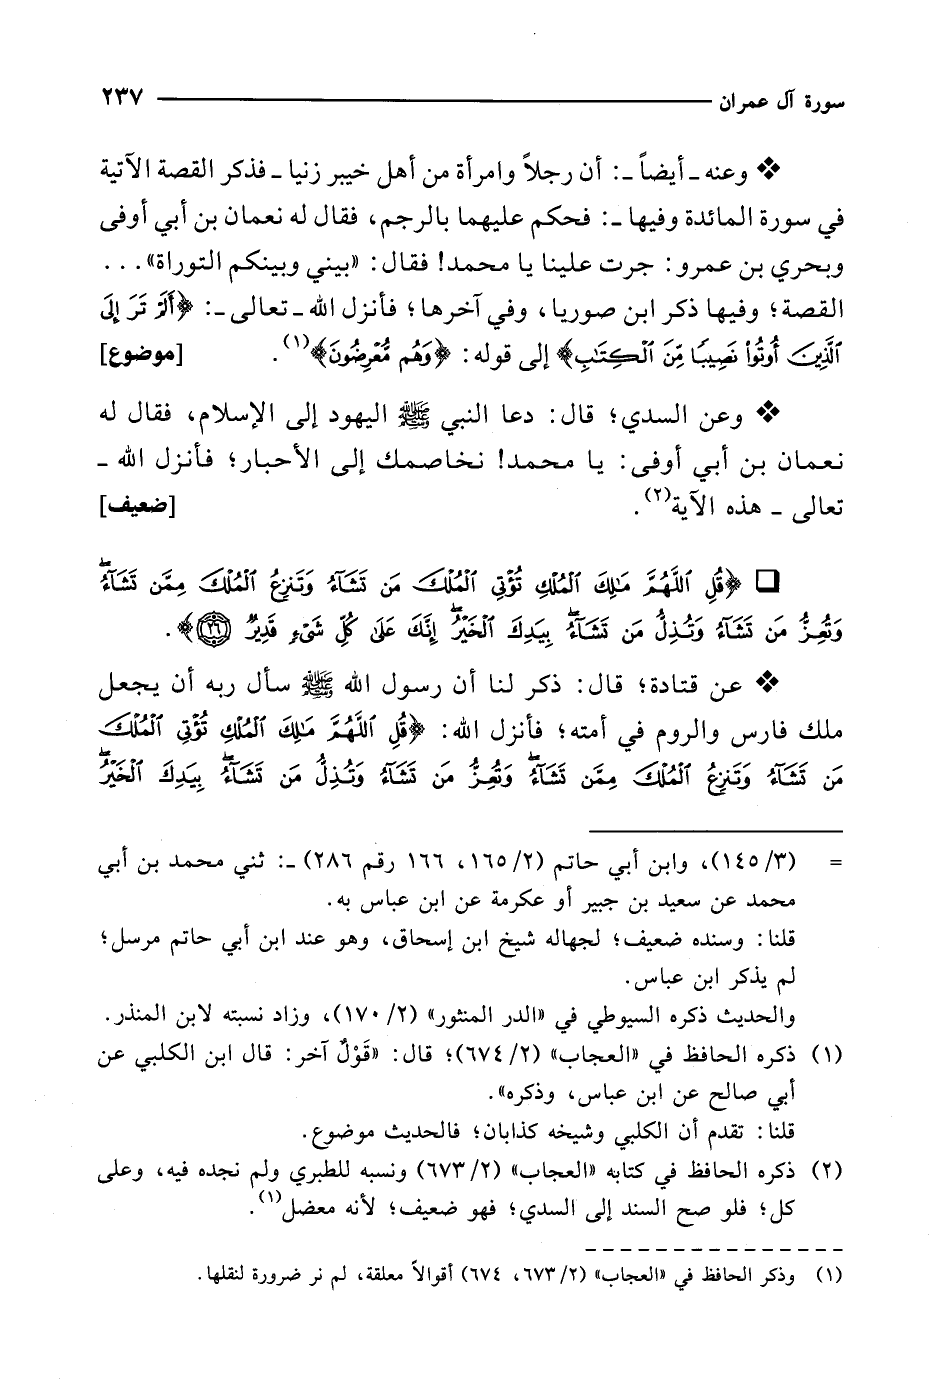 سورة آل عمران ٢٣٧
❖ وعنه ـ أيضاً ـ: أن رجلاً وامرأة من أهل خيبر زنيا ـ فذكر القصة الآتية
في سورة المائدة وفيها ـ: فحكم عليهما بالرجم، فقال له نعمان بن أبي أوفى
وبحري بن عمرو: جرت علينا يا محمد! فقال: «بيني وبينكم التوراة»...
القصة؛ وفيها ذكر ابن صوريا، وفي آخرها؛ فأنزل الله ـ تعالى ـ: ﴿أَلَمْ تَرَ إِلَى
الَّذِينَ أُوتُواْ نَصِيبًا مِّنَ الْكِتَابِ﴾ إلى قوله: ﴿وَهُم مُّعْرِضُونَ﴾(١). [موضوع]
❖ وعن السدي؛ قال: دعا النبي ﷺ اليهود إلى الإسلام، فقال له
نعمان بن أبي أوفى: يا محمد! نخاصمك إلى الأحبار؛ فأنزل الله ـ
تعالى ـ هذه الآية(٢). [ضعيف]
❑ ﴿قُلِ اللَّهُمَّ مَالِكَ الْمُلْكِ تُؤْتِي الْمُلْكَ مَن تَشَاءُ وَتَنزِعُ الْمُلْكَ مِمَّن تَشَاءُ
وَتُعِزُّ مَن تَشَاءُ وَتُذِلُّ مَن تَشَاءُ بِيَدِكَ الْخَيْرُ إِنَّكَ عَلَى كُلِّ شَيْءٍ قَدِيرٌ ٢٦﴾.
❖ عن قتادة؛ قال: ذكر لنا أن رسول الله ﷺ سأل ربه أن يجعل
ملك فارس والروم في أمته؛ فأنزل الله: ﴿قُلِ اللَّهُمَّ مَالِكَ الْمُلْكِ تُؤْتِي الْمُلْكَ
مَن تَشَاءُ وَتَنزِعُ الْمُلْكَ مِمَّن تَشَاءُ وَتُعِزُّ مَن تَشَاءُ وَتُذِلُّ مَن تَشَاءُ بِيَدِكَ الْخَيْرُ
= (٣/ ١٤٥)، وابن أبي حاتم (٢/ ١٦٥، ١٦٦ رقم ٢٨٦) ـ: ثني محمد بن أبي
محمد عن سعيد بن جبير أو عكرمة عن ابن عباس به.
قلنا: وسنده ضعيف؛ لجهاله شيخ ابن إسحاق، وهو عند ابن أبي حاتم مرسل؛
لم يذكر ابن عباس.
والحديث ذكره السيوطي في «الدر المنثور» (٢/ ١٧٠)، وزاد نسبته لابن المنذر.
(١) ذكره الحافظ في «العجاب» (٢/ ٦٧٤)؛ قال: «قَوْلٌ آخر: قال ابن الكلبي عن
أبي صالح عن ابن عباس، وذكره».
قلنا: تقدم أن الكلبي وشيخه كذابان؛ فالحديث موضوع.
(٢) ذكره الحافظ في كتابه «العجاب» (٢/ ٦٧٣) ونسبه للطبري ولم نجده فيه، وعلى
كل؛ فلو صح السند إلى السدي؛ فهو ضعيف؛ لأنه معضل(١).
(١) وذكر الحافظ في «العجاب» (٢/ ٦٧٣، ٦٧٤) أقوالاً معلقة، لم نر ضرورة لنقلها.